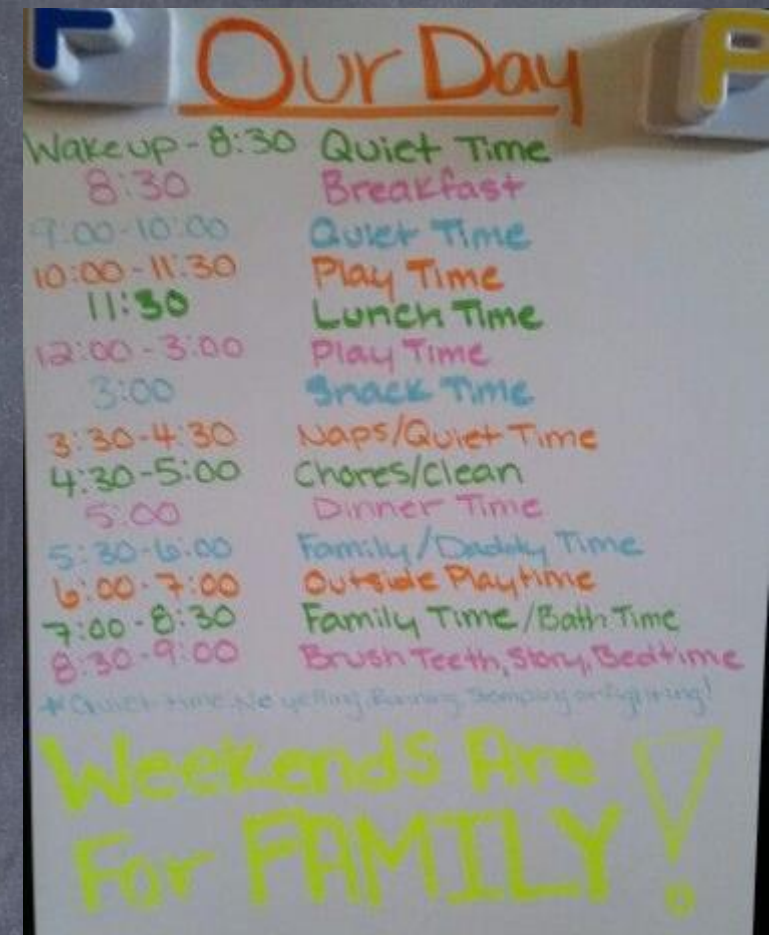 Our Day
Wakeup - 8:30 Quiet Time
8:30 Breakfast
9:00-10:00 Quiet Time
10:00-11:30 Play Time
11:30 Lunch Time
12:00-3:00 Play Time
3:00 Snack Time
3:30-4:30 Naps/Quiet Time
4:30-5:00 Chores/clean
5:00 Dinner Time
5:30-6:00 Family/Daddy Time
6:00-7:00 Outside Playtime
7:00-8:30 Family Time/Bath Time
8:30-9:00 Brush Teeth, Story, Bedtime
*Quiet time: No yelling, Running, Stomping or fighting!
Weekends Are
For FAMILY!